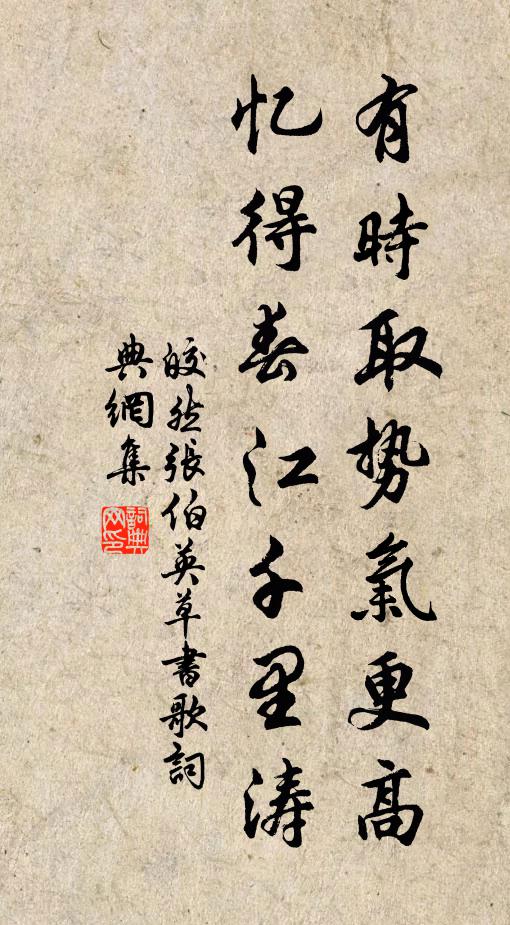 有時取势氣更高
忆得春江千里涛
皎然張伯英草書歌詞
典網集
詞典网印